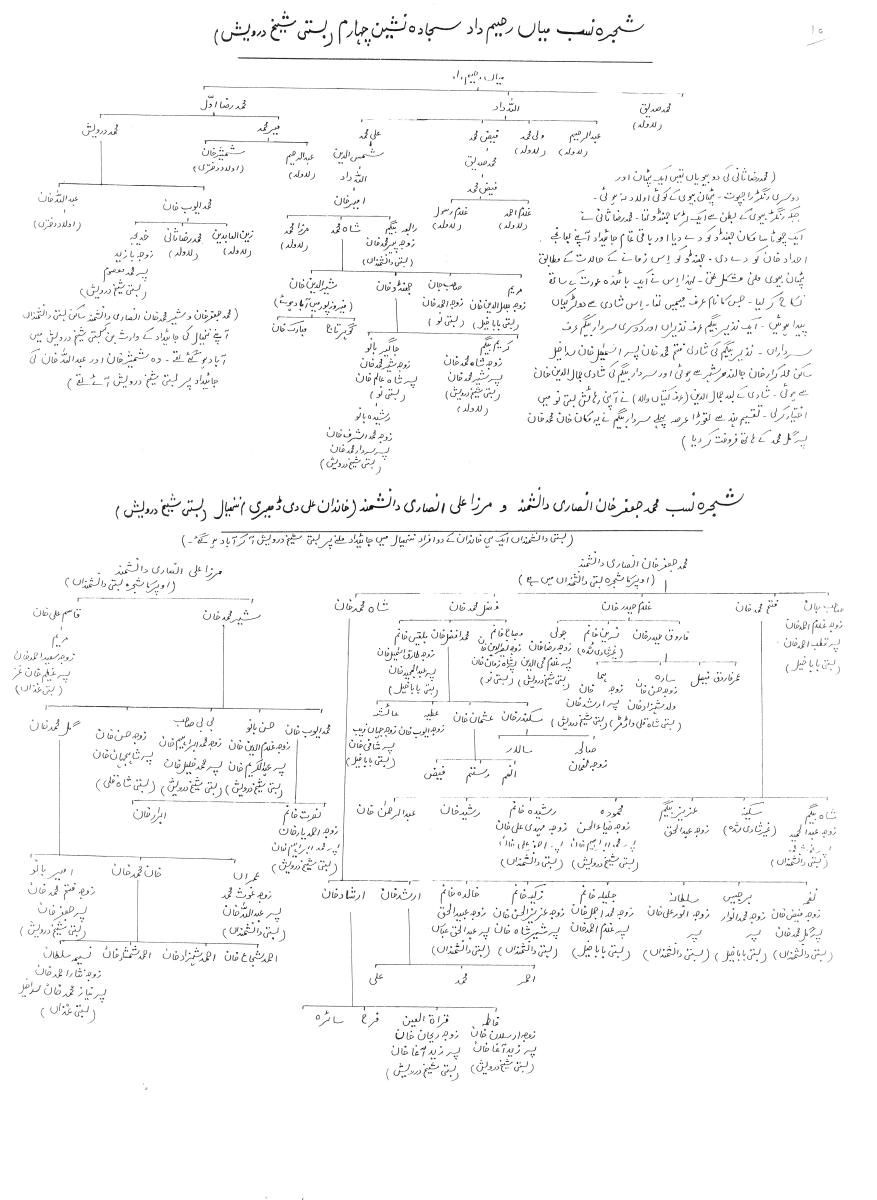 ۱۵
شجرہ نسب میاں رحیم داد سجادہ نشین چہارم (بستی شیخ درویش)
میاں رحیم داد
محمد صدیق (لاولد)
اللہ داد
محمد رضا اوّل
عبدالرحیم (لاولد)
ولی محمد (لاولد)
فیض محمد
علی محمد
میر محمد
محمد درویش
محمد صدیق
شمس الدین
عبدالرحیم (لاولد)
شمشیر خان (اولاد دختری)
فیض محمد
اللہ داد
امیر خان
محمد ایوب خان
عبداللہ خان (اولاد دختری)
غلام احمد (لاولد)
غلام رسول (لاولد)
رابعہ بیگم
(بستی دانشمنداں)
شاہ محمد
مرزا محمد (لاولد)
زین العابدین (لاولد)
محمد رضا ثانی (لاولد)
خدیجہ
زوجہ بایزید
پسر محمد معصوم
(بستی شیخ درویش)
مریم
زوجہ جلال الدین خان
(بستی بابا خیل)
صاحب جان
زوجہ احمد خان
(بستی نو)
جھنڈو خان
شیر الدین خان
(فیروز پور میں آباد ہوئے)
گوہر تاج
مبارک خان
کریم بیگم
زوجہ شاہ محمد خان
پسر شیر محمد خان
(بستی شیخ درویش)
(لاولد)
جہانگیر بانو
زوجہ شیر محمد خان
پسر شاہ عالم خان
(بستی نو)
رشیدہ بانو
زوجہ محمد اشرف خان
پسر سردار محمد خان
(بستی شیخ درویش)
(محمد رضا ثانی کی دو بیویاں تھیں ایک پٹھان اور
دوسری رنگڑ راجپوت - پٹھان بیوی کے کوئی اولاد نہ ہوئی
جبکہ رنگڑ بیوی کے بطن سے ایک لڑکا جھنڈو تھا - محمد رضا ثانی نے
ایک چھوٹا سا مکان جھنڈو کو دے دیا اور باقی تمام جائیداد اپنے بھانجے
امداد خان کو دے دی - جھنڈو کو اس زمانے کے حالات کے مطابق
پٹھان بیوی ملنی مشکل تھی - لہذا اس نے ایک عورت کے ساتھ
نکاح کر لیا - جس کا نام عرف چھیمی تھا - اس شادی سے دو لڑکیاں
پیدا ہوئیں - ایک نذیر بیگم عرف نذیراں اور دوسری سردار بیگم عرف
سرداراں - نذیر بیگم کی شادی فتح محمد خان پسر اسمٰعیل خان
ساکن محلہ کرار خان جالندھر شہر سے ہوئی اور سردار بیگم کی شادی جمال الدین خان
سے ہوئی - شادی کے بعد جمال الدین نے اپنی رہائش بستی نو میں
اختیار کر لی - تقسیم ہند سے تھوڑا عرصہ پہلے سردار بیگم نے یہ مکان خان محمد خان
پسر گل محمد کے ہاتھ فروخت کر دیا)
(محمد جعفر خان و شیر محمد خان انصاری دانشمند ساکن بستی دانشمنداں
اپنے ننھیال کی جائیداد کے وارث بن کر بستی شیخ درویش میں
آباد ہو گئے تھے - وہ شمشیر خان اور عبداللہ خان کی
جائیداد پر بستی شیخ درویش آئے تھے)
شجرہ نسب محمد جعفر خان انصاری دانشمند و مرزا علی انصاری دانشمند (خاندان علی دی ڈھیری) ننھیال (بستی شیخ درویش)
(بستی دانشمنداں ایک ہی خاندان کے دو افراد ننھیال میں جائیداد ملنے پر بستی شیخ درویش آ کر آباد ہو گئے -)
محمد جعفر خان انصاری دانشمند
(اوپر کا شجرہ بستی دانشمنداں میں ہے)
مرزا علی انصاری دانشمند
(اوپر کا شجرہ بستی دانشمنداں)
صاحب جان
زوجہ غلام احمد خان
پسر قطب احمد خان
(بستی بابا خیل)
فتح محمد خان
غلام حیدر خان
فضل محمد خان
شاہ محمد خان
شیر محمد خان
قاسم علی خان
مریم
زوجہ سعید احمد خان
(بستی غذاں)
فاروق حیدر خان
نسرین خانم
(غیر شادی شدہ)
جولی
زوجہ رضا خان
پسر غلام محی الدین
(بستی شیخ درویش)
(بستی نو)
محمد افضل خان
بلقیس خانم
زوجہ طارق اسمٰعیل خان
پسر عبدالمجید خان
(بستی بابا خیل)
عمر فاروق
فیصل
سارہ
زوجہ حسن خان
ولد شہزاد خان
ہما
زوجہ خان
پسر ارشد خان
(بستی شیخ درویش)
سکندر خان
عثمان خان
عطیہ
زوجہ ایوب خان
عائشہ
زوجہ جہاں زیب
(بستی بابا خیل)
صالحہ
زوجہ لقمان
سالار
انعم
رستم
فیض
محمد ایوب خان
حسن بانو
زوجہ غلام الدین خان
پسر عبدالکریم خان
(بستی شیخ درویش)
بی بی صاحب
زوجہ محمد ابراہیم خان
پسر محمد خلیل خان
(بستی شیخ درویش)
زوجہ حسن خان
پسر شاہجہان خان
(بستی شاہ قلی)
گل محمد خان
نصرت خانم
زوجہ احمد یار خان
پسر محمد ابراہیم خان
(بستی شیخ درویش)
ابرار خان
شاہ بیگم
زوجہ عبدالمجید
(بستی دانشمنداں)
سکینہ
(غیر شادی شدہ)
عزیز بیگم
زوجہ عبدالحق
محمودہ
زوجہ ضیاء الحسن
پسر محمد ابراہیم خان
(بستی شیخ درویش)
رشیدہ خانم
زوجہ مہدی علی خان
پسر اصغر علی خان
(بستی دانشمنداں)
رشید خان
عبدالرحمٰن خان
عمراں
زوجہ غوث محمد
پسر عبداللہ خان
(بستی دانشمنداں)
خان محمد خان
امیر بانو
زوجہ فتح محمد خان
پسر جعفر خان
(بستی شیخ درویش)
نغمہ
زوجہ فیض خان
پسر گل محمد خان
(بستی دانشمنداں)
برجیس
زوجہ محمد انوار
پسر
(بستی بابا خیل)
سلطانہ
زوجہ انور علی خان
پسر
(بستی دانشمنداں)
جلیلہ خانم
زوجہ محمد اجمل خان
پسر غلام احمد خان
(بستی بابا خیل)
زکیہ خانم
زوجہ عزیز الحق خان
پسر شیر شاہ خان
(بستی دانشمنداں)
خالدہ خانم
زوجہ عبید الحق
پسر عبدالحق عباس
(بستی دانشمنداں)
ارشد خان
ارشاد خان
احمد شجاع خان
احمد شہزاد خان
احمد شمشیر خان
نسیمہ سلطان
زوجہ نثار احمد خان
پسر نیاز محمد خان
(بستی غذاں)
احمد
محمد
علی
فاطمہ
زوجہ ارسلان خان
پسر زید آغا خان
(بستی شیخ درویش)
قراۃ العین
زوجہ ریحان خان
پسر زید آغا خان
(بستی شیخ درویش)
فرح
سائرہ